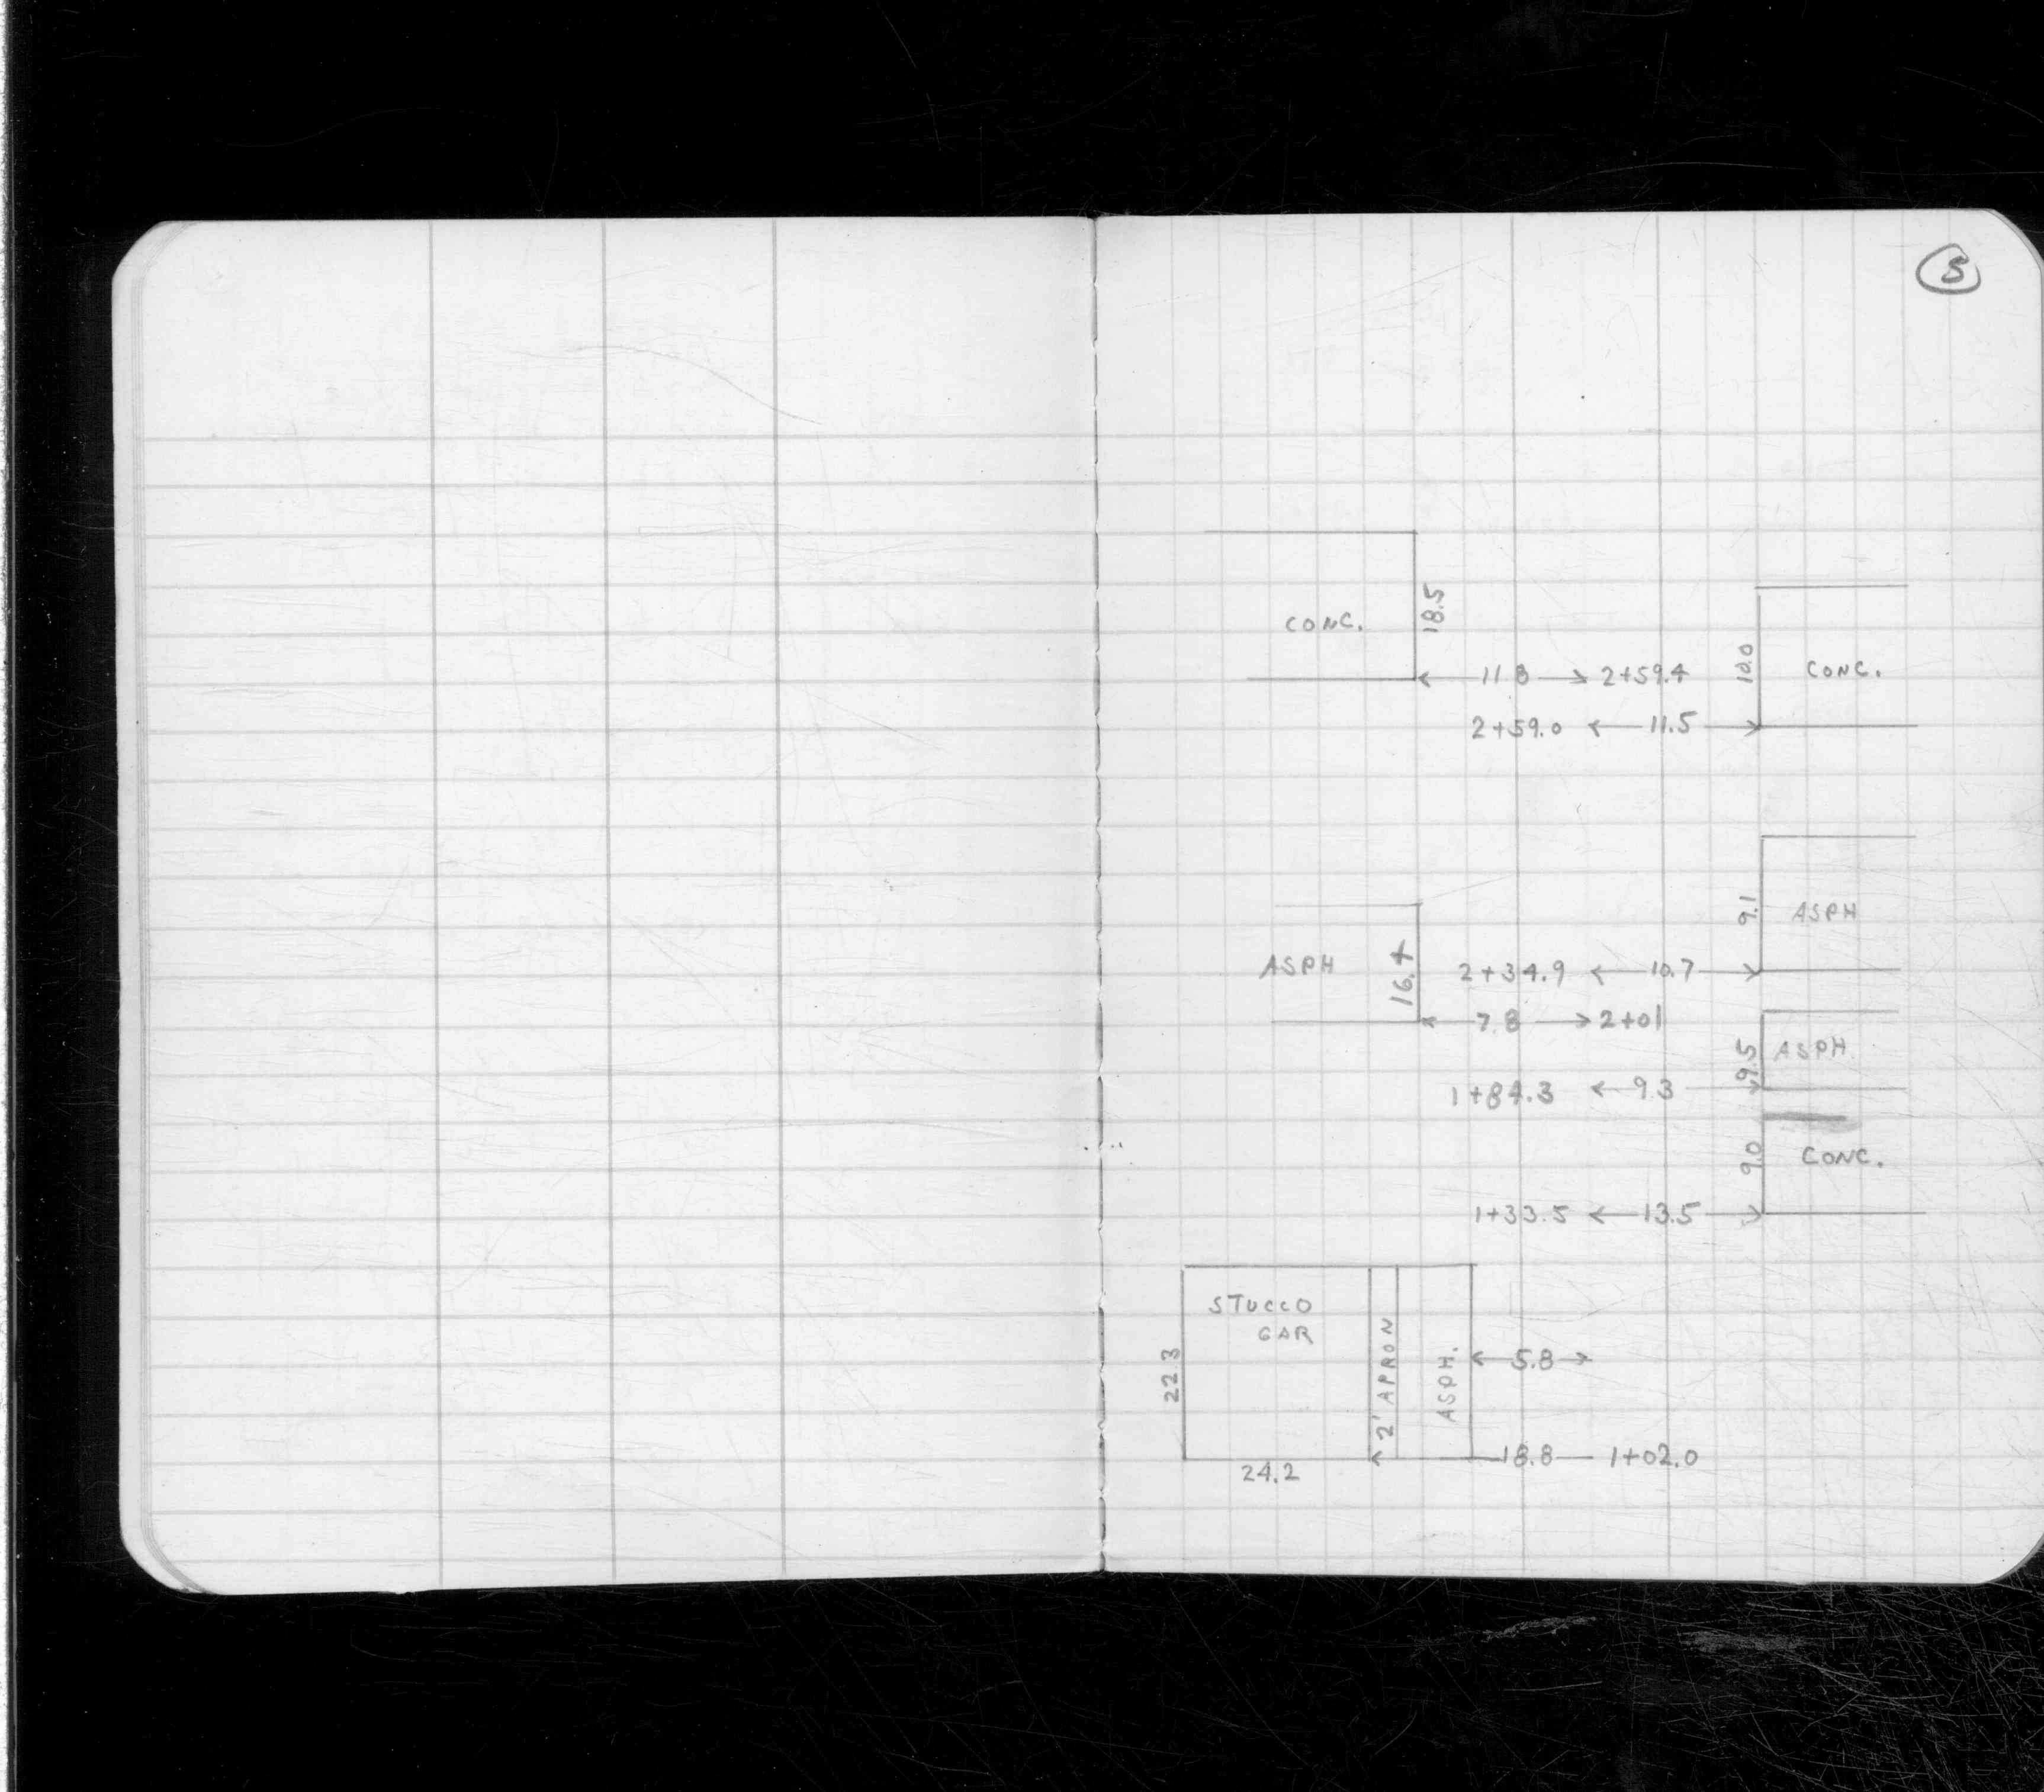 5
18.5
CONC.
10.0
CONC.
11.8 2+59.4
2+59.0 11.5
9.1
ASPH
ASPH
16.4
2+34.9 10.7
7.8 2+01
9.5
ASPH
1+84.3 9.3
9.0
CONC.
1+33.5 13.5
STUCCO
GAR
22.3
2' APRON
ASPH.
5.8
18.8 1+02.0
24.2